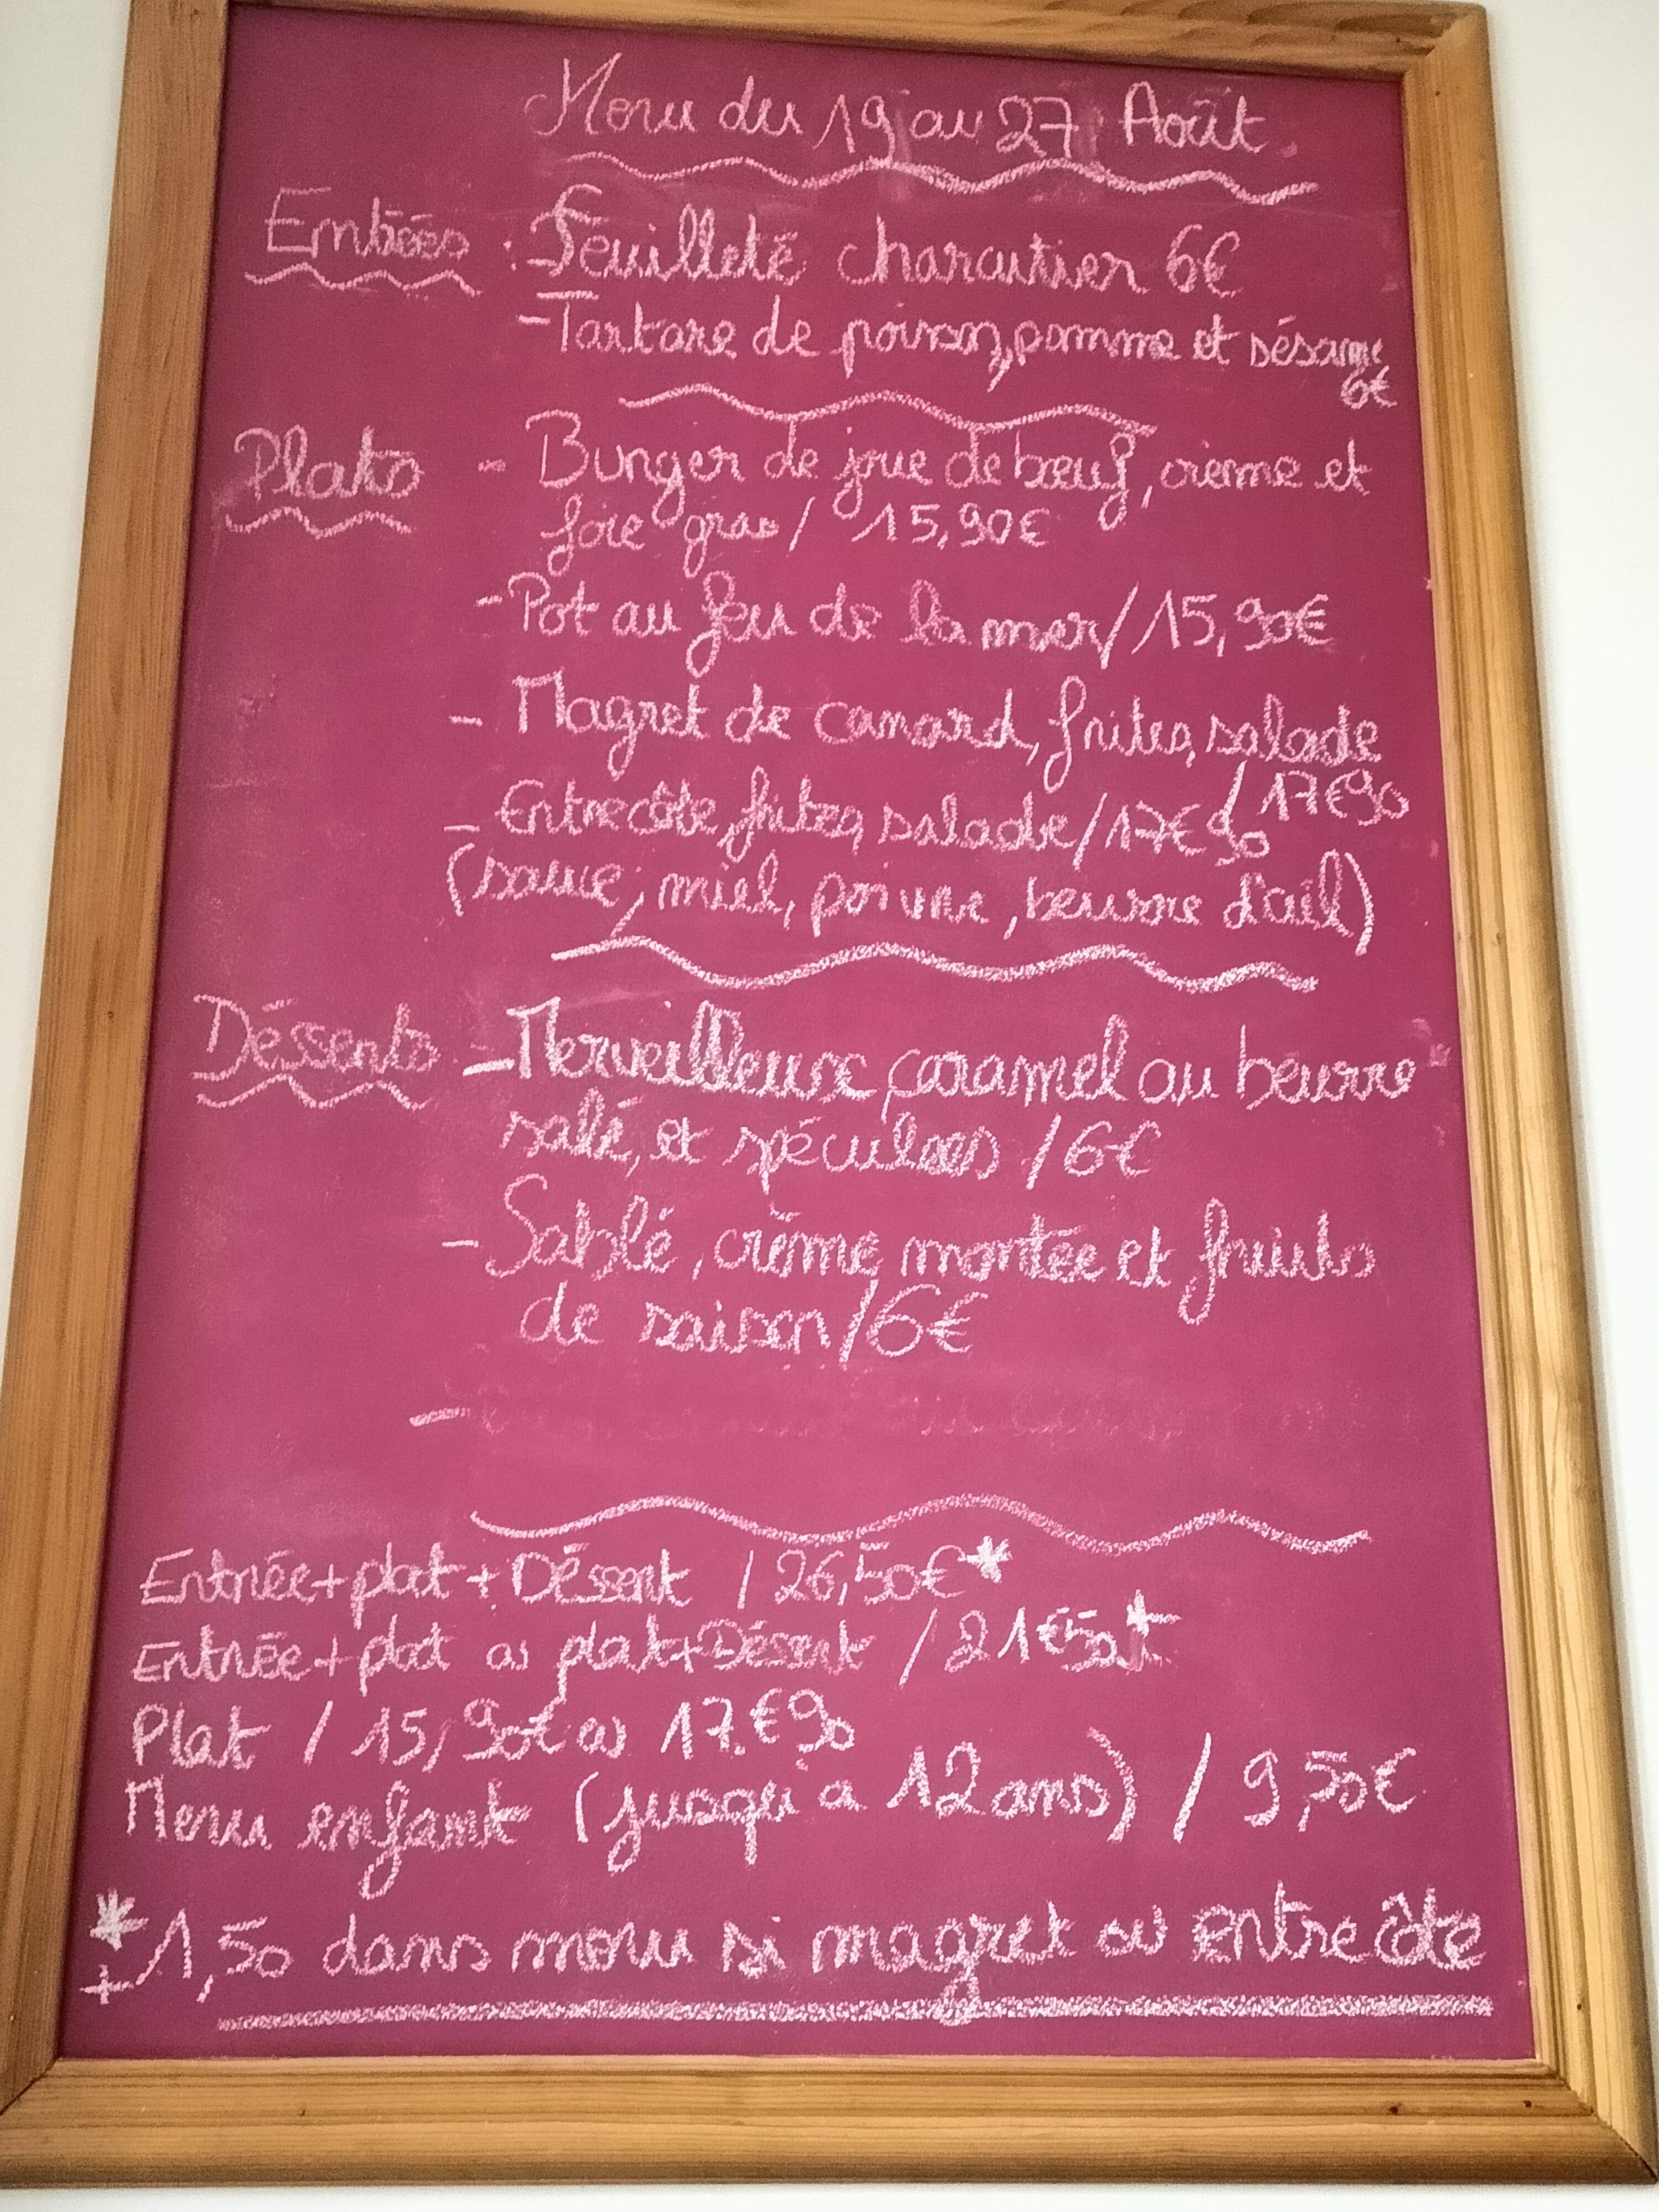 Menu du 19 au 27 Août.
Entrées : - Feuilleté charcutier 6€
- Tartare de poisson, pomme et sésame
6€
Plats - Burger de joue de bœuf, crème et
foie gras / 15,90€
- Pot au feu de la mer / 15,90€
- Magret de canard, frites, salade
/ 17€90
- Entrecôte, frites, salade / 17€90
(sauce; miel, poivre, beurre d'ail)
Désserts - Merveilleux caramel au beurre
salé, et spéculoos / 6€
- Sablé, crème montée et fruits
de saison / 6€
-
Entrée + plat + Déssert / 26,50€*
Entrée + plat ou plat + Déssert / 21€50*
Plat / 15,90€ ou 17.€90
Menu enfant (jusqu'à 12 ans) / 9,50€
* +1,50 dans menu si magret ou entrecôte